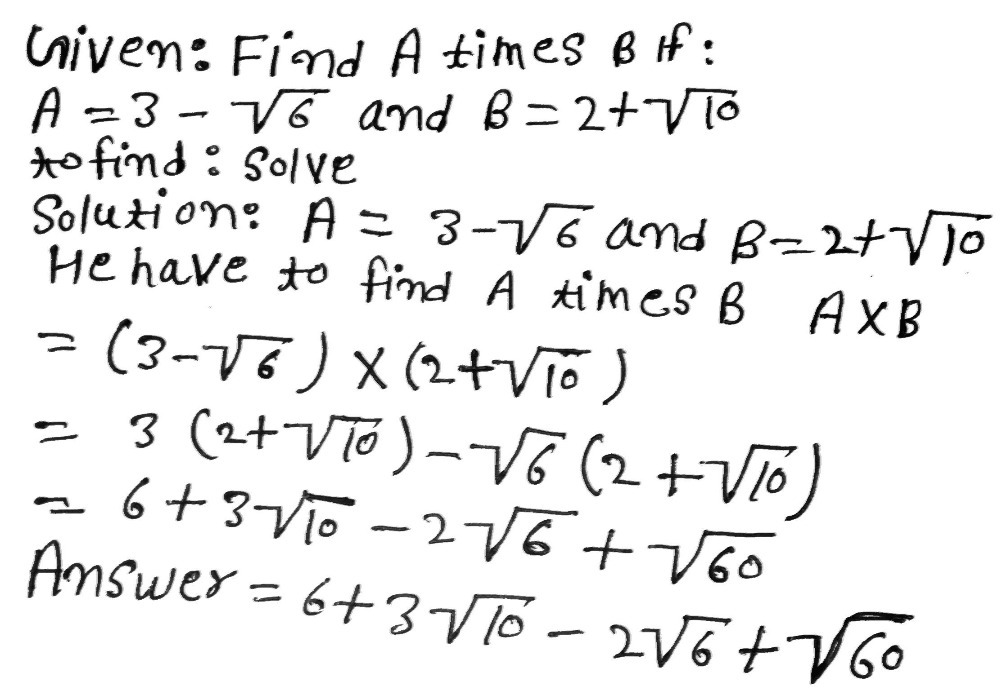 Given: Find A times B If:
A = 3 - √6 and B = 2+√10
to find: Solve
Solution: A = 3-√6 and B=2+√10
He have to find A times B A×B
= (3-√6) × (2+√10)
= 3 (2+√10) - √6 (2 + √10)
= 6 + 3√10 - 2√6 + √60
Answer = 6+3√10 - 2√6 + √60